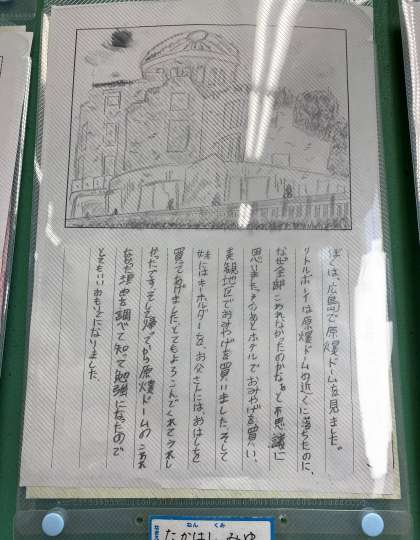 ぼくは、広島で原爆ドームを見ました。
リトルボーイは原爆ドームの近くに落ちたのに、
なぜ全部こわれなかったのかなぁと不思議に
思いました。そのあとホテルでおみやげを買い、
美観地区でおみやげを買いました。そして
妹にはキーホルダーを、お父さんには、おはしを
買ってあげました。とてもよろこんでくれてうれし
かったです。そして帰ってから原爆ドームのこわれ
なかった理由を調べて知って勉強になったので
とてもいいおもいでになりました。
なまえ
ねん くみ
たかはし みゆ